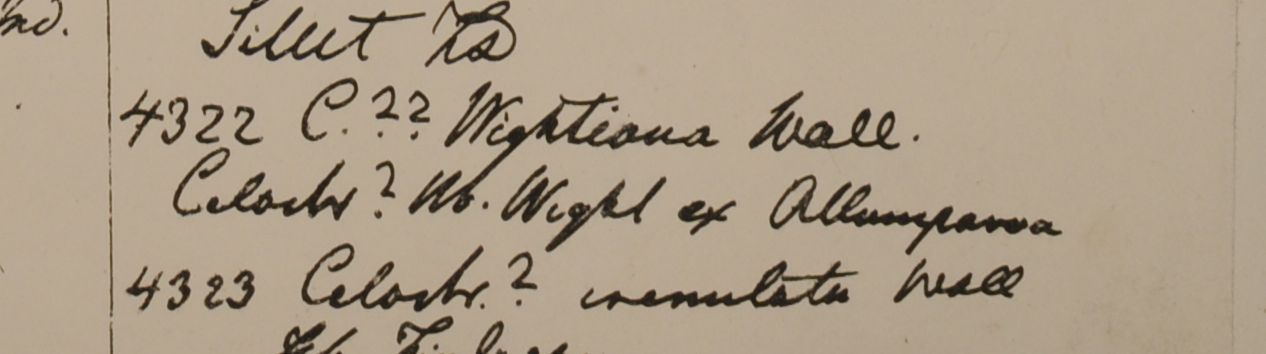 nd.
Sillet
4322 C. ?? Wightiana Wall.
Celastr? Hb. Wight ex Allumparva
4323 Celastr.? crenulata Wall
Hb. Finlayson